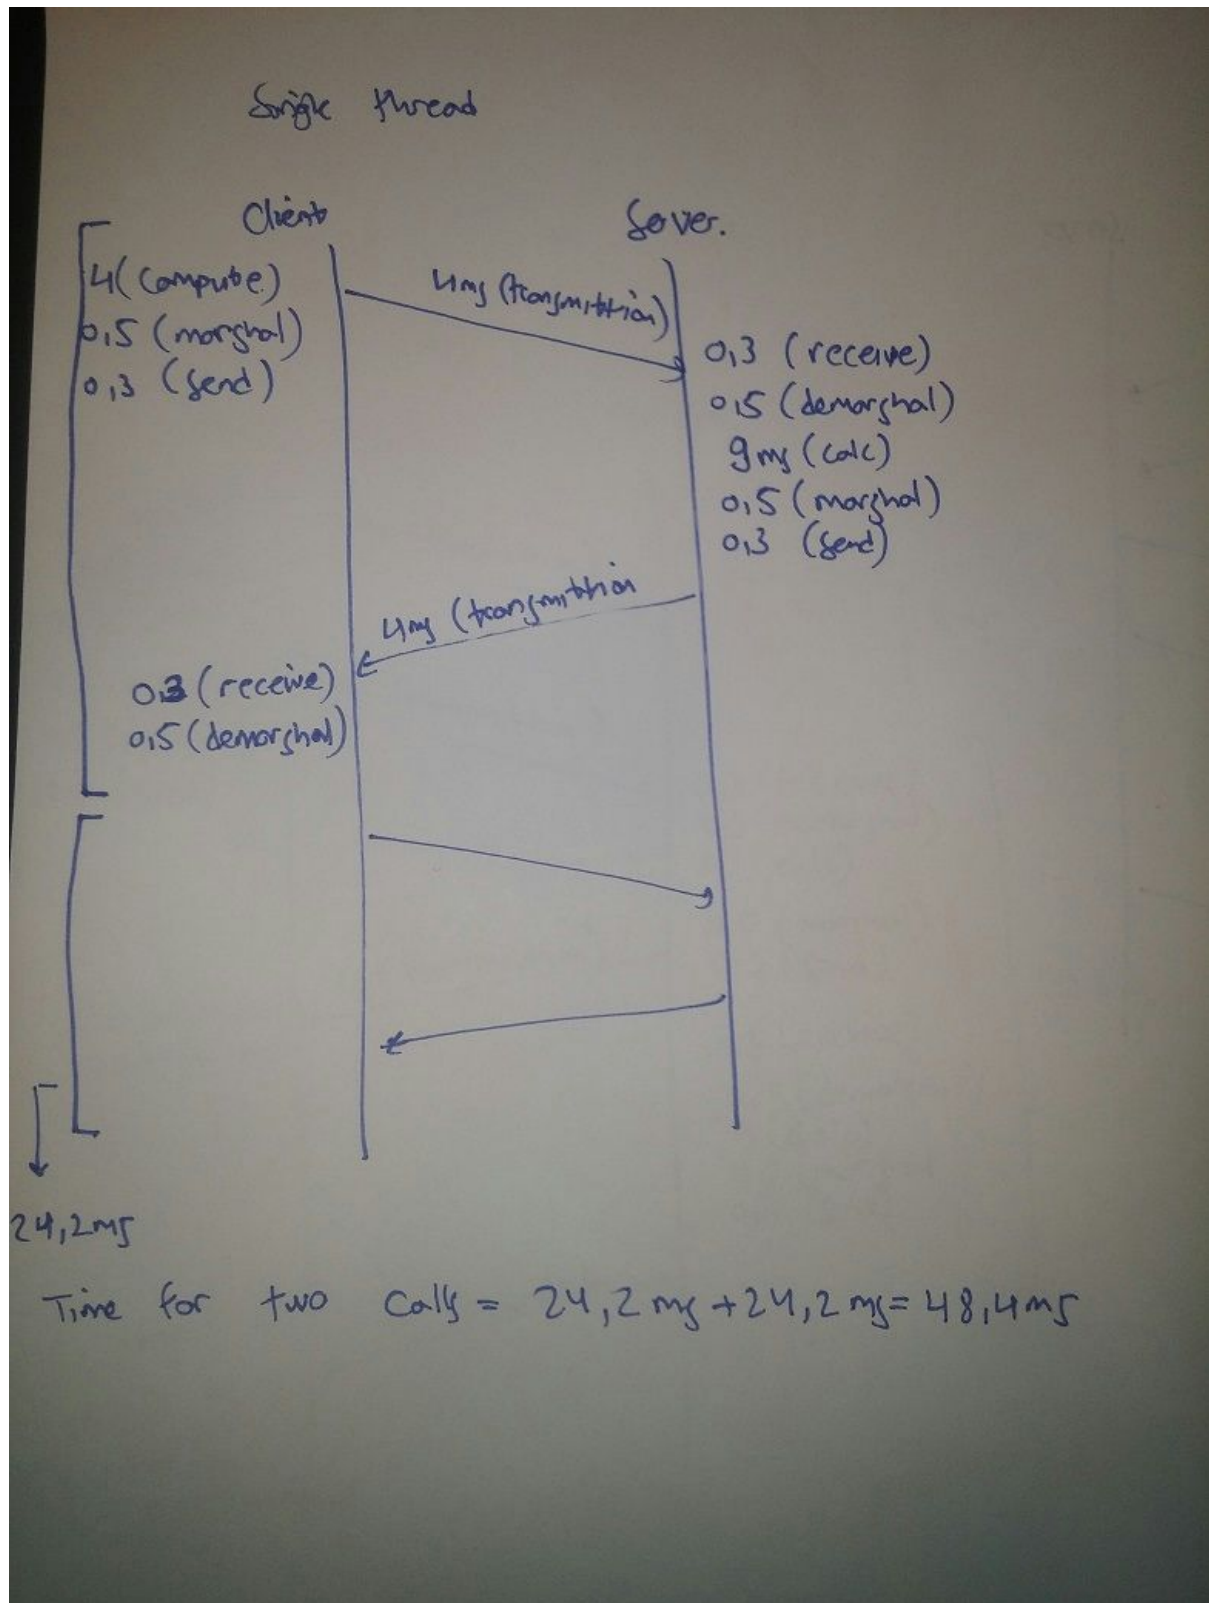 Single thread
Client
Server.
4 (compute)
0,5 (marshal)
0,3 (send)
4ms (transmittion)
0,3 (receive)
0,5 (demarshal)
9ms (calc)
0,5 (marshal)
0,3 (send)
4ms (transmittion
0,3 (receive)
0,5 (demarshal)
24,2ms
Time for two calls = 24,2 ms + 24,2 ms = 48,4ms